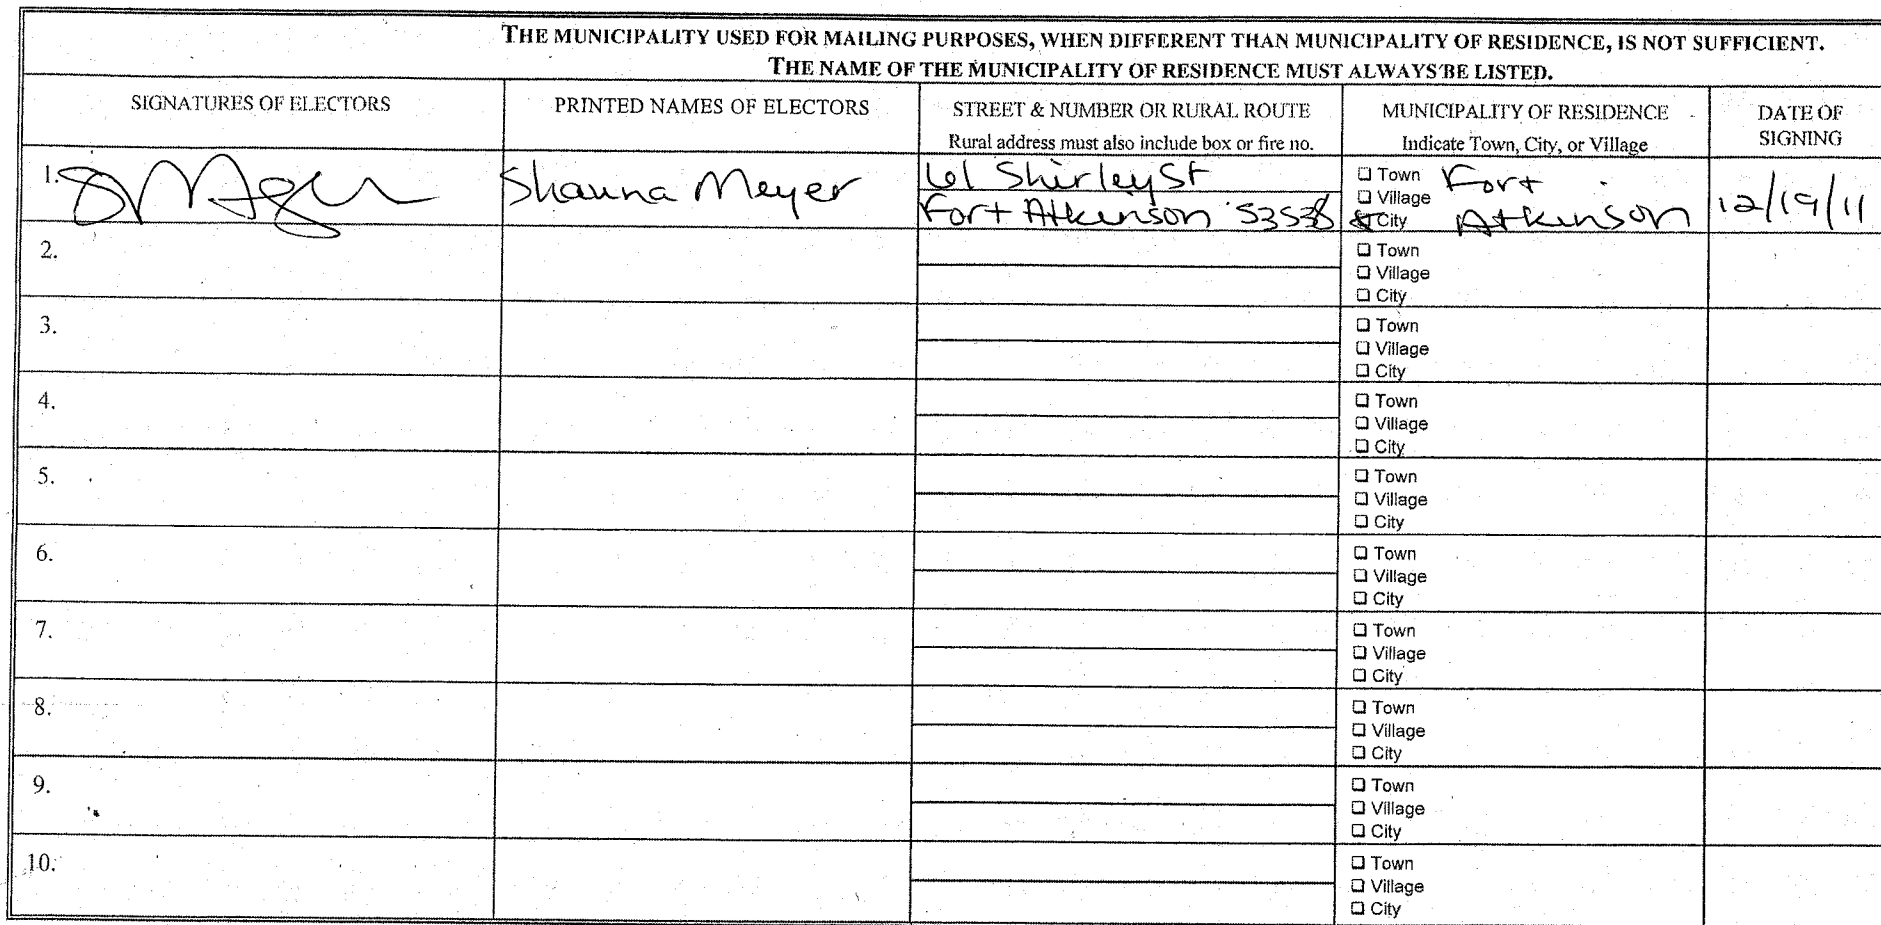 THE MUNICIPALITY USED FOR MAILING PURPOSES, WHEN DIFFERENT THAN MUNICIPALITY OF RESIDENCE, IS NOT SUFFICIENT.
THE NAME OF THE MUNICIPALITY OF RESIDENCE MUST ALWAYS BE LISTED.
SIGNATURES OF ELECTORS
PRINTED NAMES OF ELECTORS
STREET & NUMBER OR RURAL ROUTE
Rural address must also include box or fire no.
MUNICIPALITY OF RESIDENCE
Indicate Town, City, or Village
DATE OF
SIGNING
1.
Shauna Meyer
61 Shirley St
Fort Atkinson 53538
Town
Village
City
Fort
Atkinson
12/19/11
2.
Town
Village
City
3.
Town
Village
City
4.
Town
Village
City
5.
Town
Village
City
6.
Town
Village
City
7.
Town
Village
City
8.
Town
Village
City
9.
Town
Village
City
10.
Town
Village
City